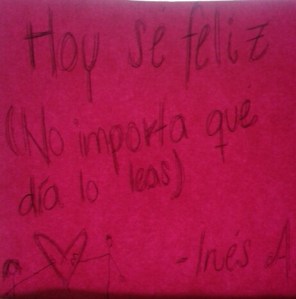 Hoy sé feliz
(No importa qué
día lo leas)
-Inés A